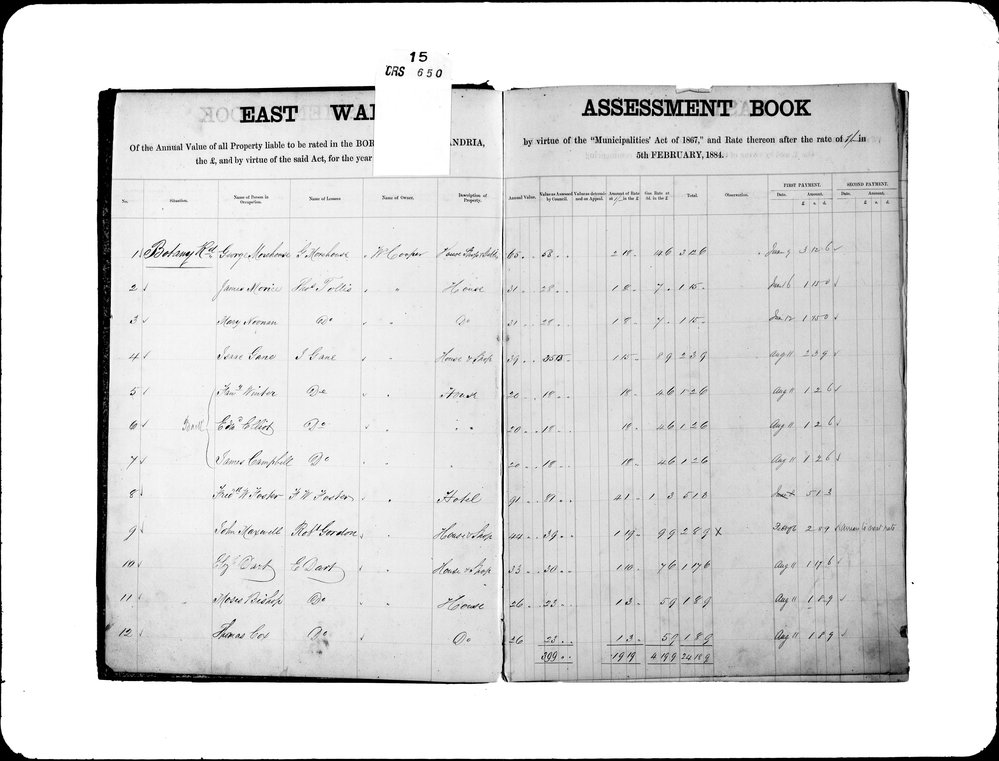 15
CRS 650
EAST WA
ASSESSMENT BOOK
Of the Annual Value of all Property liable to be rated in the BOR NDRIA,
the £, and by virtue of the said Act, for the year
by virtue of the "Municipalities' Act of 1867," and Rate thereon after the rate of 1/ in
5th FEBRUARY, 1884.
No. Situation. Name of Person in Occupation. Name of Lessees Name of Owner. Description of Property. Annual Value. Value as Assessed by Council. Value as determined on Appeal. Amount of Rate at 1/ in the £ Gas Rate at 3d. in the £ Total. Observation. FIRST PAYMENT. Date. Amount. £ s. d. SECOND PAYMENT. Date. Amount. £ s. d.
1 Botany Rd George Morehouse G Morehouse " W Cooper House Shop & 65 58 2 18 14 6 3 12 6 June 9 3 12 6
2 James Thos Tollis " " House 31 28 1 8 7 1 15 June 16 1 15 0
3 Mary Noonan Do " " Do 31 28 1 8 7 1 15 June 12 1 15 0
4 Isaac Gane I Gane " " House & Shop 39 35 15 8 9 2 3 9 Aug 11 2 3 9
5 Winter Do " " House 20 18 18 4 6 1 2 6 Aug 11 1 2 6
6 Edwd Elliot Do " " " " 20 18 18 4 6 1 2 6 Aug 11 1 2 6
7 James Campbell Do " " " 20 18 18 4 6 1 2 6 Aug 11 1 2 6
8 Fredk W Foster F W Foster " " Hotel 91 81 4 1 1 3 5 1 3 5 1 3
9 John Maxwell Robt Gordon " " House & Shop 44 39 1 19 9 9 2 8 9 X 2 8 9
10 Elizh Dart E Dart " " House & Shop 33 30 1 10 7 6 1 17 6 Aug 11 1 17 6
11 Moses Bishop Do " " House 26 23 1 3 5 9 1 8 9 Aug 11 1 8 9
12 Thomas Cox Do " Do 26 23 1 3 5 9 1 8 9 Aug 11 1 8 9
399 19 19 4 19 9 24 18 9